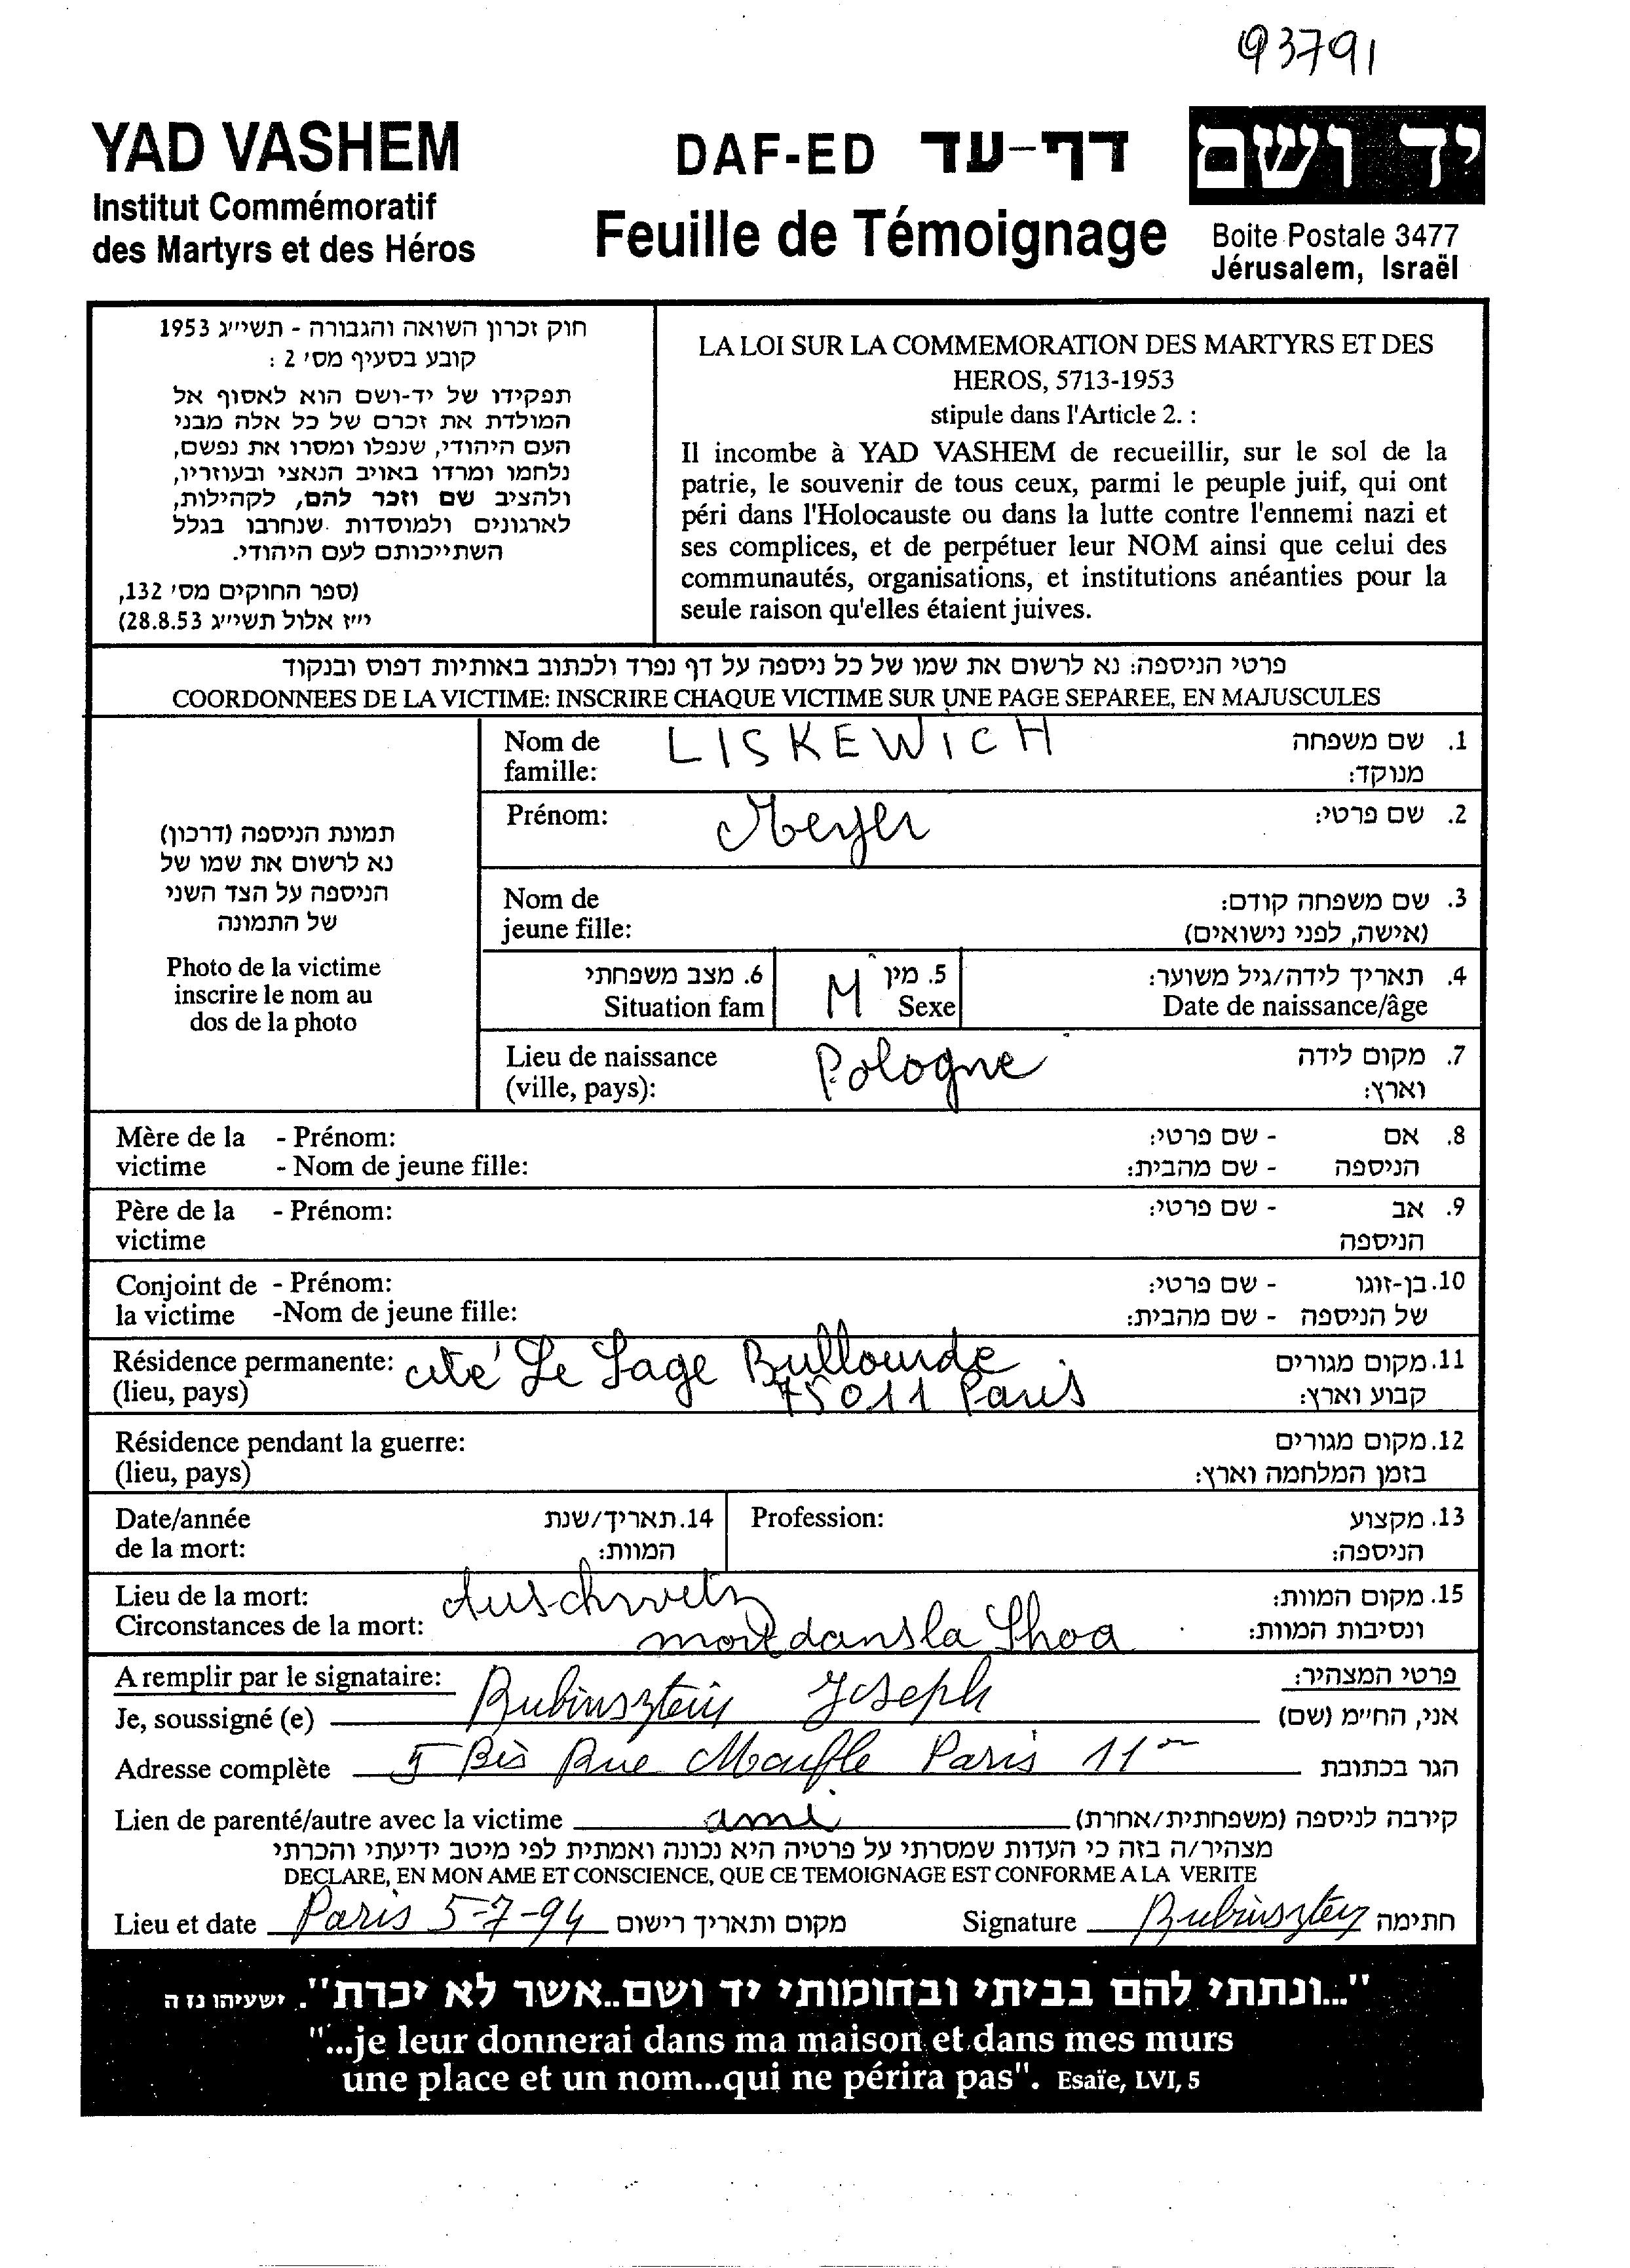 93791
YAD VASHEM
Institut Commémoratif
des Martyrs et des Héros
DAF-ED דף-עד
Feuille de Témoignage
יד ושם
Boite Postale 3477
Jérusalem, Israël
חוק זכרון השואה והגבורה - תשי״ג 1953
קובע בסעיף מס׳ 2 :
תפקידו של יד-ושם הוא לאסוף אל
המולדת את זכרם של כל אלה מבני
העם היהודי, שנפלו ומסרו את נפשם,
נלחמו ומרדו באויב הנאצי ובעוזריו,
ולהציב שם וזכר להם, לקהילות,
לארגונים ולמוסדות שנחרבו בגלל
השתייכותם לעם היהודי.
(ספר החוקים מס׳ 132,
י״ז אלול תשי״ג 28.8.53)
LA LOI SUR LA COMMEMORATION DES MARTYRS ET DES
HEROS, 5713-1953
stipule dans l'Article 2. :
Il incombe à YAD VASHEM de recueillir, sur le sol de la
patrie, le souvenir de tous ceux, parmi le peuple juif, qui ont
péri dans l'Holocauste ou dans la lutte contre l'ennemi nazi et
ses complices, et de perpétuer leur NOM ainsi que celui des
communautés, organisations, et institutions anéanties pour la
seule raison qu'elles étaient juives.
פרטי הניספה: נא לרשום את שמו של כל ניספה על דף נפרד ולכתוב באותיות דפוס ובנקוד
COORDONNEES DE LA VICTIME: INSCRIRE CHAQUE VICTIME SUR UNE PAGE SEPAREE, EN MAJUSCULES
תמונת הניספה (דרכון)
נא לרשום את שמו של
הניספה על הצד השני
של התמונה
Photo de la victime
inscrire le nom au
dos de la photo
Nom de LISKEWICH 1. שם משפחה
famille: מנוקד:
Prénom: Meyer 2. שם פרטי:
Nom de 3. שם משפחה קודם:
jeune fille: (אישה, לפני נישואים)
6. מצב משפחתי M 5. מין 4. תאריך לידה/גיל משוער:
Situation fam Sexe Date de naissance/âge
Lieu de naissance Pologne 7. מקום לידה
(ville, pays): וארץ:
Mère de la - Prénom: - שם פרטי: 8. אם
victime - Nom de jeune fille: - שם מהבית: הניספה
Père de la - Prénom: - שם פרטי: 9. אב
victime הניספה
Conjoint de - Prénom: - שם פרטי: 10. בן-זוגו
la victime -Nom de jeune fille: - שם מהבית: של הניספה
Résidence permanente: cité Le Sage Bullourde 11. מקום מגורים
(lieu, pays) 75011 Paris קבוע וארץ:
Résidence pendant la guerre: 12. מקום מגורים
(lieu, pays) בזמן המלחמה וארץ:
Date/année 14. תאריך/שנת Profession: 13. מקצוע
de la mort: המוות: הניספה:
Lieu de la mort: Auschwetz 15. מקום המוות:
Circonstances de la mort: mort dans la Shoa ונסיבות המוות:
A remplir par le signataire: פרטי המצהיר:
Je, soussigné (e) Rubinsztein Joseph אני, החי״מ (שם)
Adresse complète 5 Bis Rue Moufle Paris 11 הגר בכתובת
Lien de parenté/autre avec la victime ami קירבה לניספה (משפחתית/אחרת)
מצהיר/ה בזה כי העדות שמסרתי על פרטיה היא נכונה ואמתית לפי מיטב ידיעתי והכרתי
DECLARE, EN MON AME ET CONSCIENCE, QUE CE TEMOIGNAGE EST CONFORME A LA VERITE
Lieu et date Paris 5-7-94 מקום ותאריך רישום Signature Rubinsztein חתימה
"...ונתתי להם בביתי ובחומותי יד ושם..אשר לא יכרת". ישעיהו נז ה
"...je leur donnerai dans ma maison et dans mes murs
une place et un nom...qui ne périra pas". Esaïe, LVI, 5